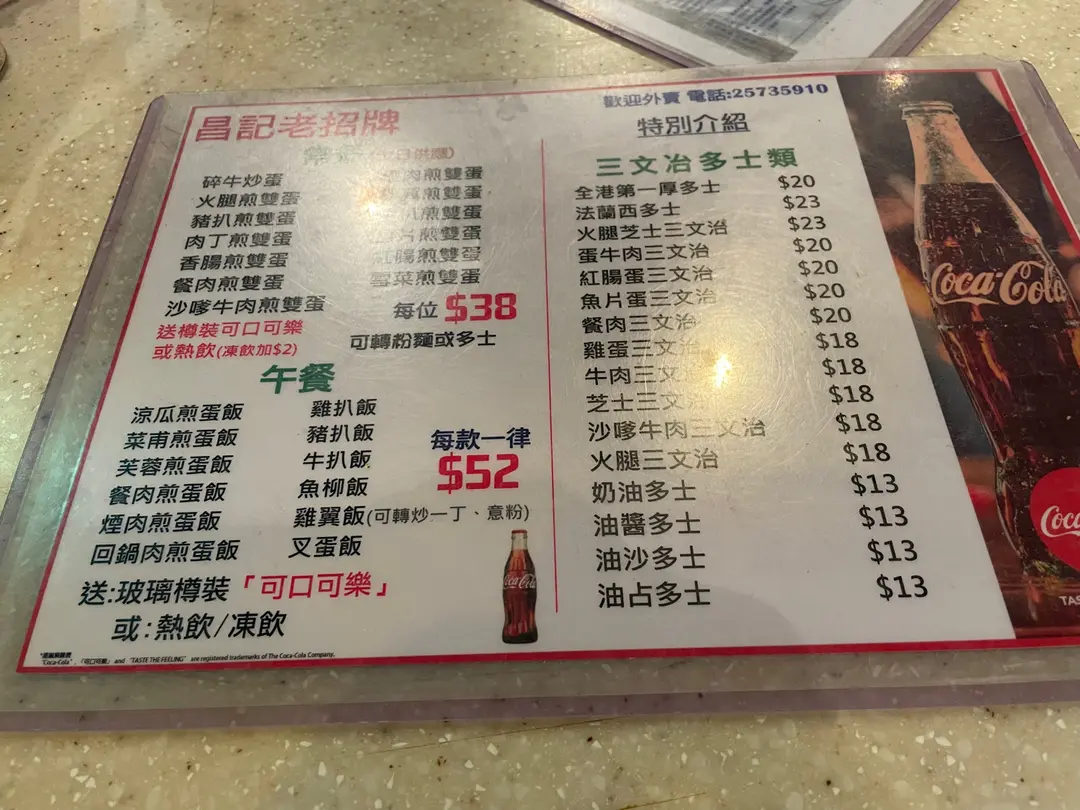 歡迎外賣 電話:25735910
昌記老招牌
供應)
碎牛炒蛋
火腿煎雙蛋
豬扒煎雙蛋
肉丁煎雙蛋
香腸煎雙蛋
餐肉煎雙蛋
沙嗲牛肉煎雙蛋
肉煎雙蛋
煎雙蛋
煎雙蛋
片煎雙蛋
紅腸煎雙蛋
雪菜煎雙蛋
每位 $38
送樽裝可口可樂
或熱飲(凍飲加$2)
可轉粉麵或多士
午餐
涼瓜煎蛋飯
菜甫煎蛋飯
芙蓉煎蛋飯
餐肉煎蛋飯
煙肉煎蛋飯
回鍋肉煎蛋飯
雞扒飯
豬扒飯
牛扒飯
魚柳飯
雞翼飯(可轉炒一丁、意粉)
叉蛋飯
每款一律
$52
送:玻璃樽裝「可口可樂」
或:熱飲/凍飲
"Coca-Cola", 「可口可樂」 and "TASTE THE FEELING" are registered trademarks of The Coca-Cola Company.
特別介紹
三文冶多士類
全港第一厚多士 $20
法蘭西多士 $23
火腿芝士三文治 $23
蛋牛肉三文治 $20
紅腸蛋三文治 $20
魚片蛋三文治 $20
餐肉三文治 $20
雞蛋三文治 $18
牛肉三文 $18
芝士三文 $18
沙嗲牛肉三文治 $18
火腿三文治 $18
奶油多士 $13
油醬多士 $13
油沙多士 $13
油占多士 $13
Coca-Cola
Coca-Cola
Coca
TAS